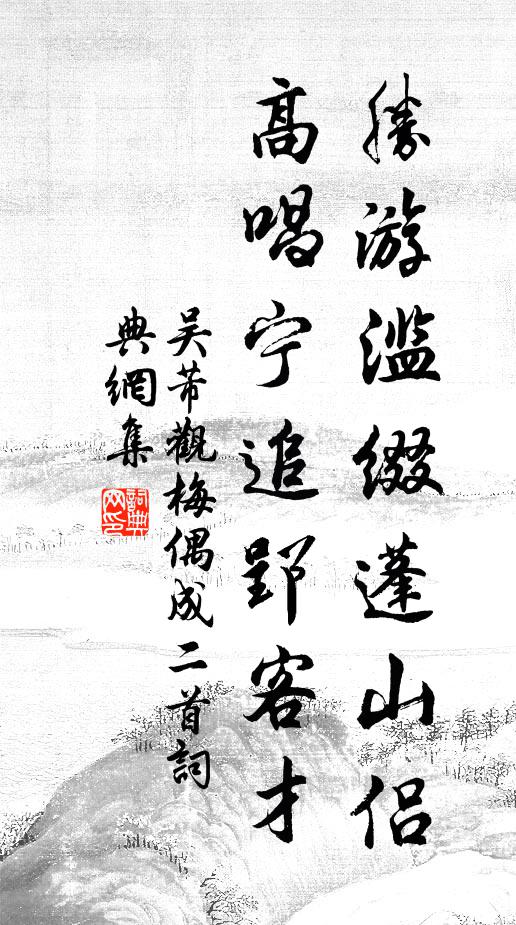 勝游滥缀蓬山侣
高唱宁追郢客才
吴芾觀梅偶成二首詞
典網集
詞典
网印